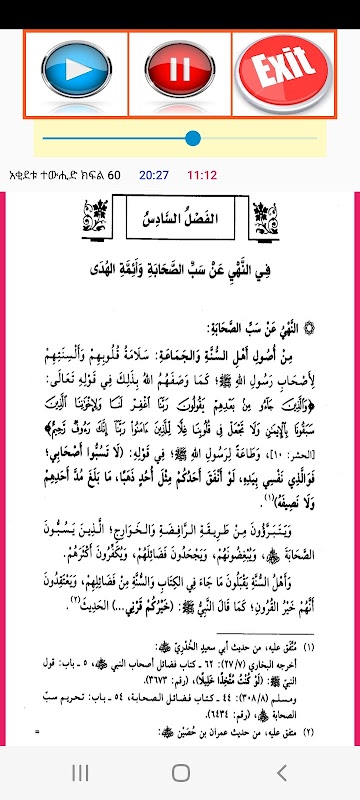 Exit
አቂደቱ ተውሒድ ክፍል 60 20:27 11:12
الفَصْلُ السَّادِسُ
فِي النَّهْيِ عَنْ سَبِّ الصَّحَابَةِ وَأَئِمَّةِ الهُدَى
النَّهْيُ عَنْ سَبِّ الصَّحَابَةِ:
مِنْ أُصُولِ أَهْلِ السُّنَّةِ وَالجَمَاعَةِ: سَلَامَةُ قُلُوبِهِمْ وَأَلْسِنَتِهِمْ
لِأَصْحَابِ رَسُولِ اللهِ ﷺ؛ كَمَا وَصَفَهُمُ اللهُ بِذَلِكَ فِي قَوْلِهِ تَعَالَى:
﴿وَالَّذِينَ جَاءُو مِنْ بَعْدِهِمْ يَقُولُونَ رَبَّنَا اغْفِرْ لَنَا وَلِإِخْوَانِنَا الَّذِينَ
سَبَقُونَا بِالْإِيمَانِ وَلَا تَجْعَلْ فِي قُلُوبِنَا غِلًّا لِلَّذِينَ آمَنُوا رَبَّنَا إِنَّكَ رَءُوفٌ رَحِيمٌ﴾
[الحشر: ١٠]، وَطَاعَةً لِرَسُولِ اللهِ ﷺ؛ فِي قَوْلِهِ: (لَا تَسُبُّوا أَصْحَابِي؛
فَوَالَّذِي نَفْسِي بِيَدِهِ، لَوْ أَنْفَقَ أَحَدُكُمْ مِثْلَ أُحُدٍ ذَهَبًا، مَا بَلَغَ مُدَّ أَحَدِهِمْ
وَلَا نَصِيفَهُ)(١).
وَيَتَبَرَّؤُونَ مِنْ طَرِيقَةِ الرَّافِضَةِ وَالخَوَارِجِ؛ الَّذِينَ يَسُبُّونَ
الصَّحَابَةَ ﷺ، وَيُبْغِضُونَهُمْ، وَيَجْحَدُونَ فَضَائِلَهُمْ، وَيُكَفِّرُونَ أَكْثَرَهُمْ.
وَأَهْلُ السُّنَّةِ يَقْبَلُونَ مَا جَاءَ فِي الكِتَابِ وَالسُّنَّةِ مِنْ فَضَائِلِهِمْ، وَيَعْتَقِدُونَ
أَنَّهُمْ خَيْرُ القُرُونِ؛ كَمَا قَالَ النَّبِيُّ ﷺ: (خَيْرُكُمْ قَرْنِي...) الحَدِيثَ(٢).
(١) متَّفق عليه، من حديث أبي سعيدٍ الخُدْريِّ
أخرجه البخاري (٢٧/٧): ٦٢ ـ كتاب فضائل أصحاب النبي ﷺ، ٥ ـ باب: قول
النبيِّ ﷺ: (لَوْ كُنْتُ مُتَّخِذًا خَلِيلًا)، (رقم: ٣٦٧٣).
ومسلم (٣٠٨/٨): ٤٤ ـ كتاب فضائل الصحابة، ٥٤ ـ باب: تحريم سبّ
الصحابة، (رقم: ٦٤٣٤).
(٢) متفق عليه، من حديث عمران بن حُصَيْنٍ =